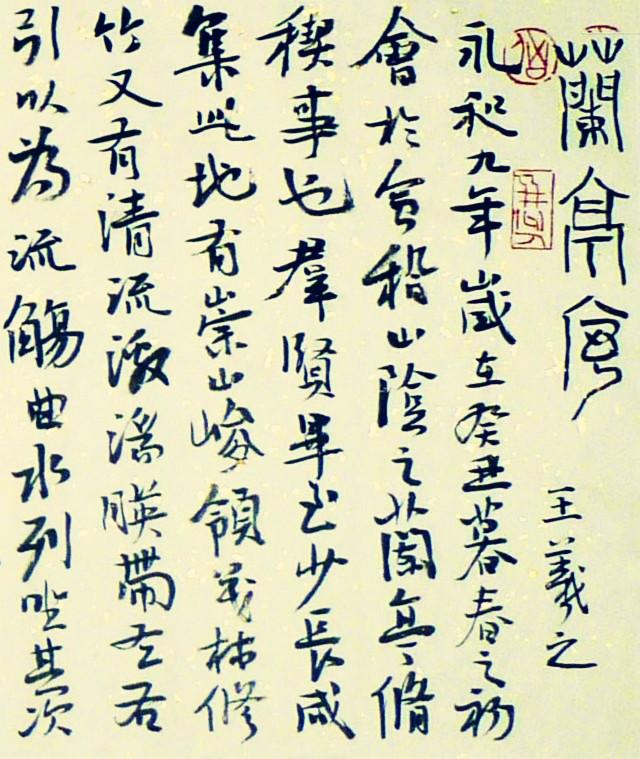 蘭亭序
王羲之
永和九年歲在癸丑暮春之初
會於會稽山陰之蘭亭脩
稧事也羣賢畢至少長咸
集此地有崇山峻領茂林修
竹又有清流激湍暎帶左右
引以為流觴曲水列坐其次